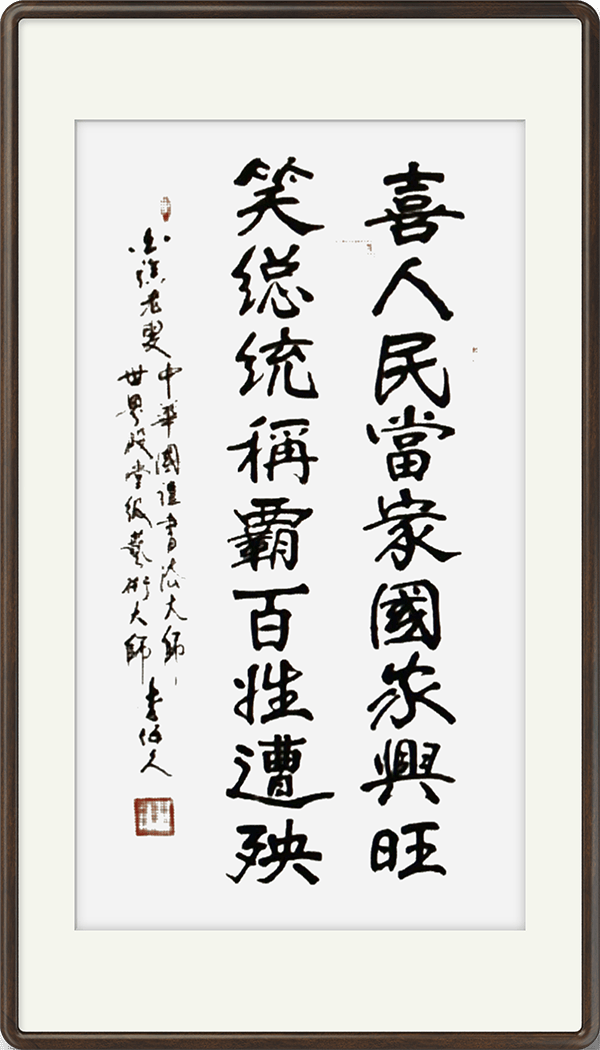 喜人民當家國家興旺
笑総统稱霸百姓遭殃
老叟中華國禮書法大師
世界殿堂级藝術大師李伯人